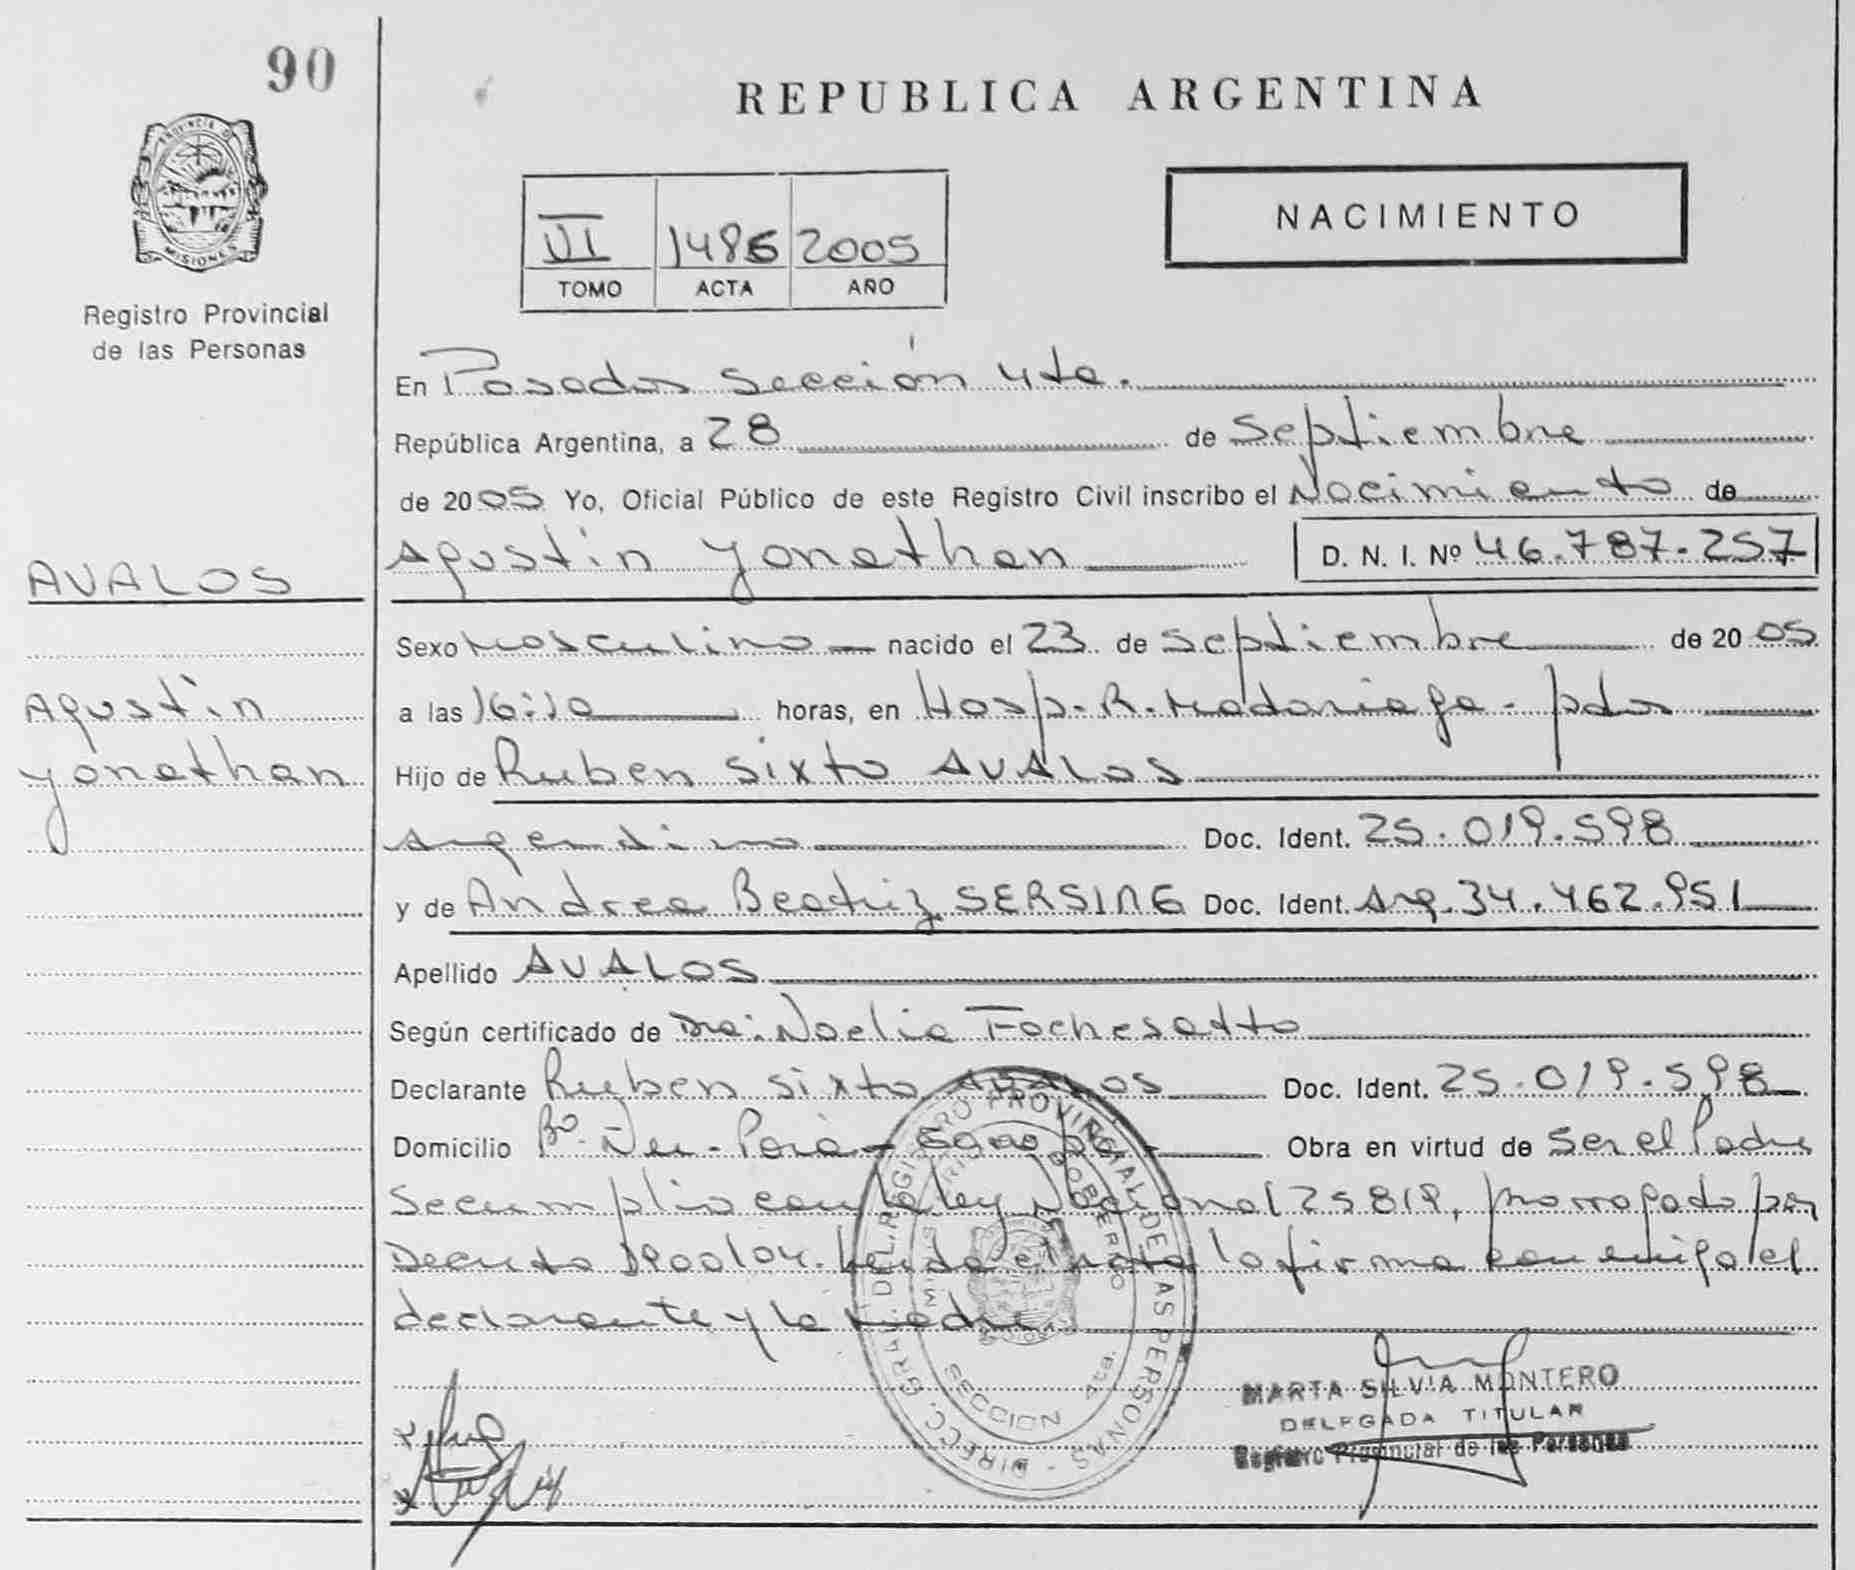 90
REPUBLICA ARGENTINA
PROVINCIA D MISIONES
NACIMIENTO
VI 1486 2005
TOMO ACTA AÑO
Registro Provincial
de las Personas
En Posadas Sección 4ta.
República Argentina, a 28 de Septiembre
de 2005 Yo, Oficial Público de este Registro Civil inscribo el Nacimiento de
Agustin Yonathan D. N. I. Nº 46.787.257
AVALOS
Sexo Masculino nacido el 23 de Septiembre de 2005
Agustin
a las 16:10 horas, en Hosp. R. Madariaga - pdas
Yonathan
Hijo de Ruben Sixto AVALOS
Argentino Doc. Ident. 25.019.598
y de Andrea Beatriz SERSING Doc. Ident. Arg. 34.462.951
Apellido AVALOS
Según certificado de Dra. Noelia Fochesatto
Declarante Ruben Sixto AVALOS Doc. Ident. 25.019.598
Domicilio Bº Ñu-Porá - Obra en virtud de Ser el Padre
Se cumplio con la ley Nacional 25819, prorrogado por
Decreto leida el acta la firma conmigo el
declarante y la madre.
DIRECC. GRAL. DEL REGISTRO PROVINCIAL DE LAS PERSONAS
GOBIERNO
SECCION 4ta.
MARTA SILVIA MONTERO
DELEGADA TITULAR
Registro Provincial de las Personas